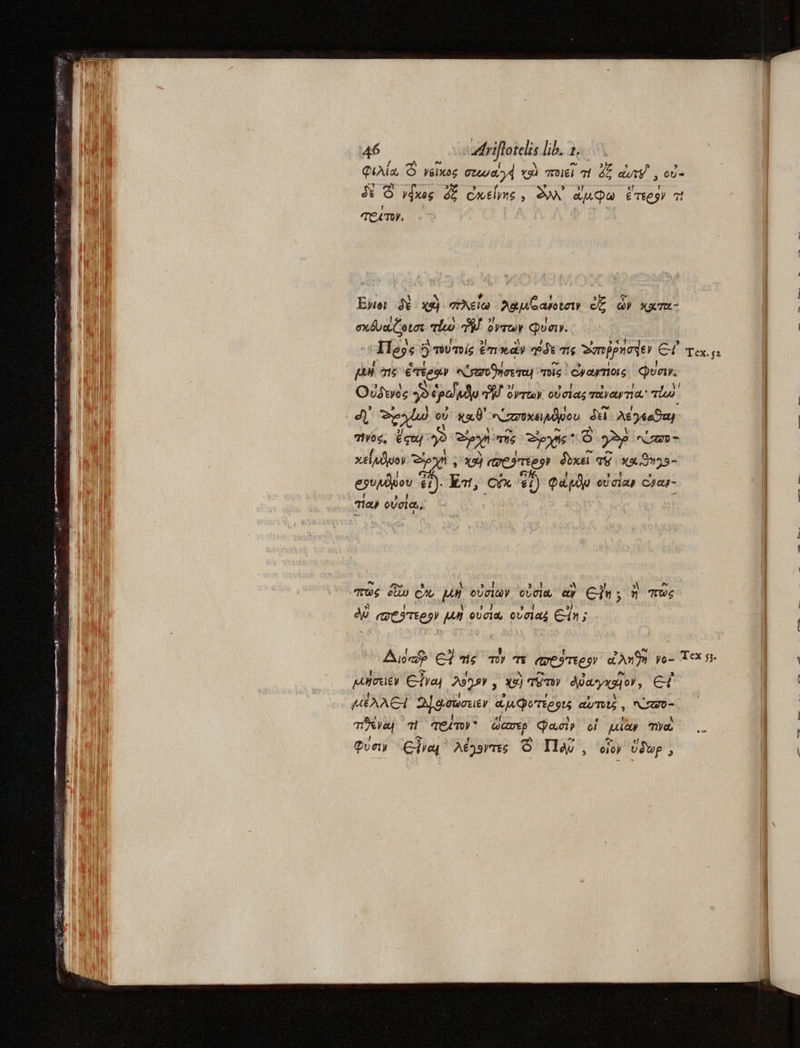 46 Aristotelis lib. 1.
φιλία τὸ νεῖκος συνάγει καὶ ποιεῖ τὶ ἐξ αὐτοῦ, οὐ-
δὲ τὸ νεῖκος ἐξ ἐκείνης, ἀλλ' ἄμφω ἕτερόν τι
τρίτον.
Ενιοι δὲ καὶ πλείω λαμβάνουσιν ἐξ ὧν κατα-
σκευάζουσι τὴν τῶν ὄντων φύσιν.
Πρὸς δὲ τούτοις ἔτι κἂν τόδε τις ἀπορρήσειεν εἰ Tex. 52
μή τις ἑτέραν ὑποθήσεται τοῖς ἐναντίοις φύσιν.
Οὐδενὸς γὰρ ὁρῶμεν τῶν ὄντων οὐσίας τἀναντία· τὴν
δ' ἀρχὴν οὐ καθ' ὑποκειμένου δεῖ λέγεσθαι
τινός, ἔσται γὰρ ἀρχὴ τῆς ἀρχῆς· τὸ γὰρ ὑπο-
κείμενον ἀρχὴ, καὶ πρότερον δοκεῖ τοῦ κατηγο-
ρουμένου εἶναι. Ετι, οὐκ εἶναι φαμὲν οὐσίαν ἐναν-
τίαν οὐσίᾳ,
πῶς οὖν ἐκ μὴ οὐσιων οὐσία ἂν εἴη; ἢ πῶς
ἂν πρότερον μὴ οὐσία οὐσίας εἴη;
Διόπερ εἴ τις τόν τε πρότερον ἀληθῆ νο- Tex 53.
μήσειεν εἶναι λόγον, καὶ τοῦτον ἀναγκαῖον, εἰ
μέλλει διασώσειεν ἀμφοτέρους αὐτοὺς, ὑπο-
τιθέναι τὶ τρίτον· ὥσπερ φασὶν οἱ μίαν τινὰ
φύσιν εἶναι λέγοντες τὸ Πᾶν, οἷον ὕδωρ,